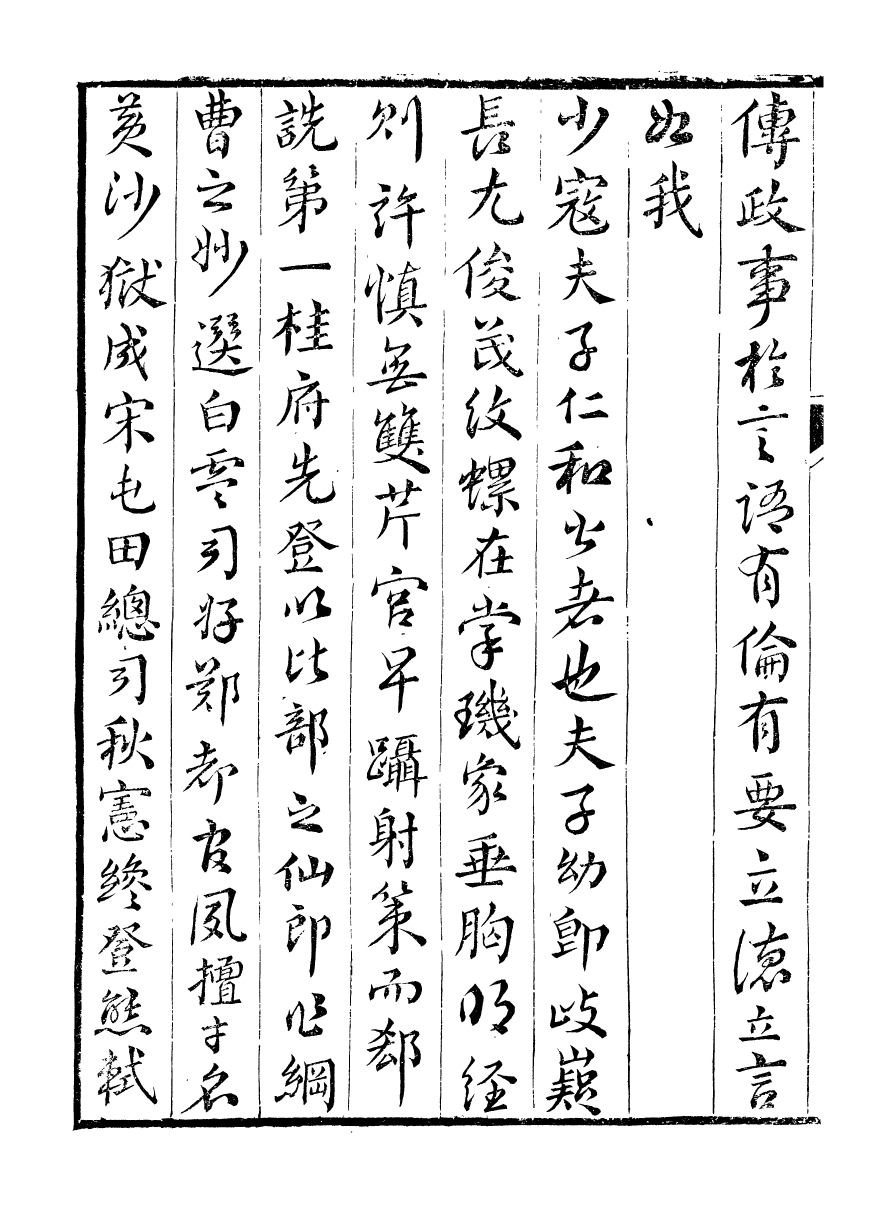 傳政事於言語有倫有要立德立言
如我
少寇夫子仁和公者也夫子幼即歧嶷
長尤俊茂紋螺在掌璣家垂胸明經
則許慎無雙芹宮早躡射策而郄
詵第一桂府先登以比部之仙郎作綱
曹之妙選白雲司好鄭都官夙擅才名
黃沙獄成宋屯田總司秋憲終登熊軾